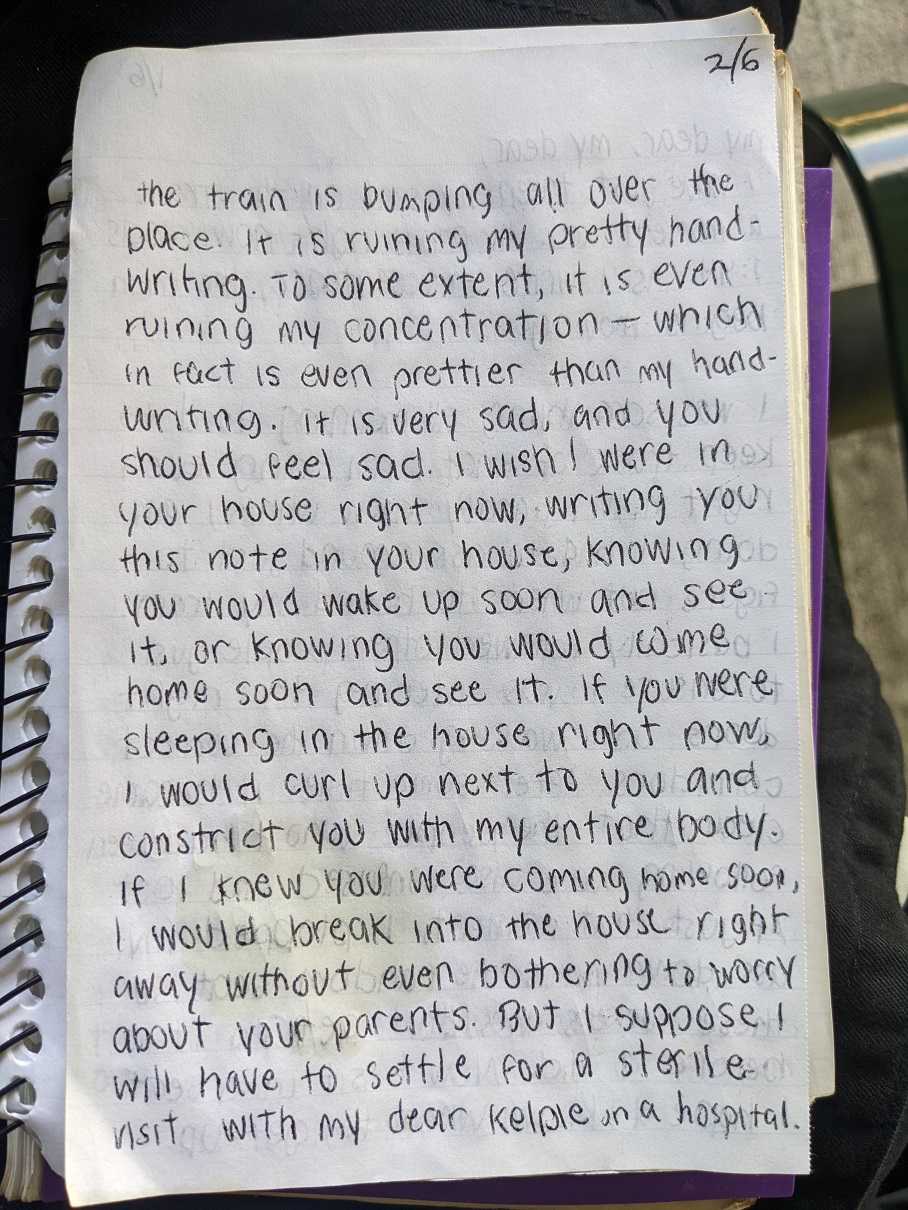 2/6
the train is bumping all over the
place. It is ruining my pretty hand-
writing. To some extent, it is even
ruining my concentration – which
in fact is even prettier than my hand-
writing. It is very sad, and you
should feel sad. I wish I were in
your house right now, writing you
this note in your house, knowing
you would wake up soon and see
it, or knowing you would come
home soon and see it. If you were
sleeping in the house right now,
I would curl up next to you and
constrict you with my entire body.
If I knew you were coming home soon,
I would break into the house right
away without even bothering to worry
about your parents. But I suppose I
will have to settle for a sterile
visit with my dear Kelpie in a hospital.